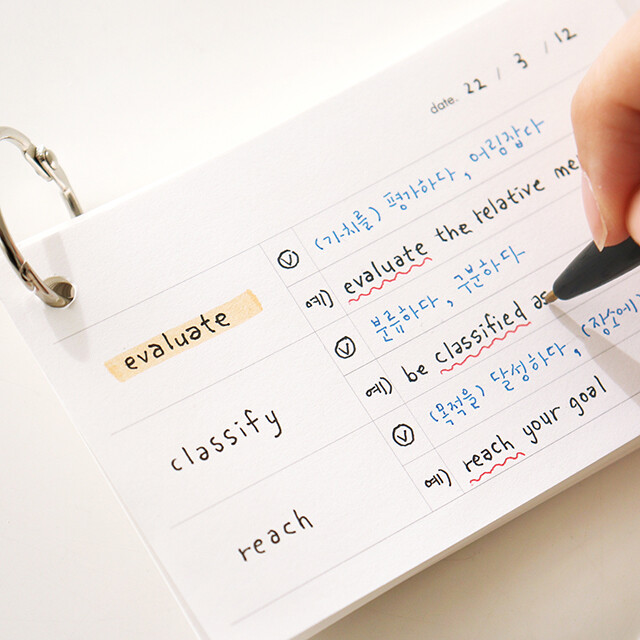 date. 22 / 3 / 12
evaluate
ⓥ (가치를) 평가하다, 어림잡다
예) evaluate the relative me
classify
ⓥ 분류하다, 구분하다
예) be classified as
reach
ⓥ (목적을) 달성하다, (장소에)
예) reach your goal